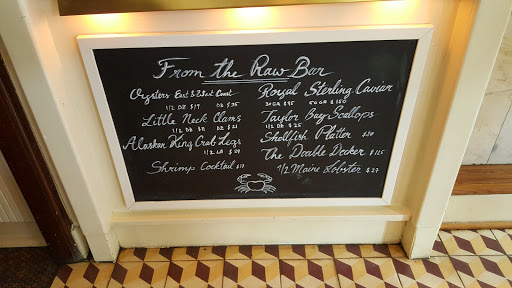 From the Raw Bar
Oysters East & West Coast
1/2 DZ $19 DZ $35
Little Neck Clams
1/2 DZ $11 DZ $21
Alaskan King Crab Legs
1/2 LB $29
Shrimp Cocktail $17
Royal Sterling Caviar
30 GR $95 50 GR $150
Taylor Bay Scallops
1/2 DZ $25
Shellfish Platter $70
The Double Decker $115
1/2 Maine Lobster $27